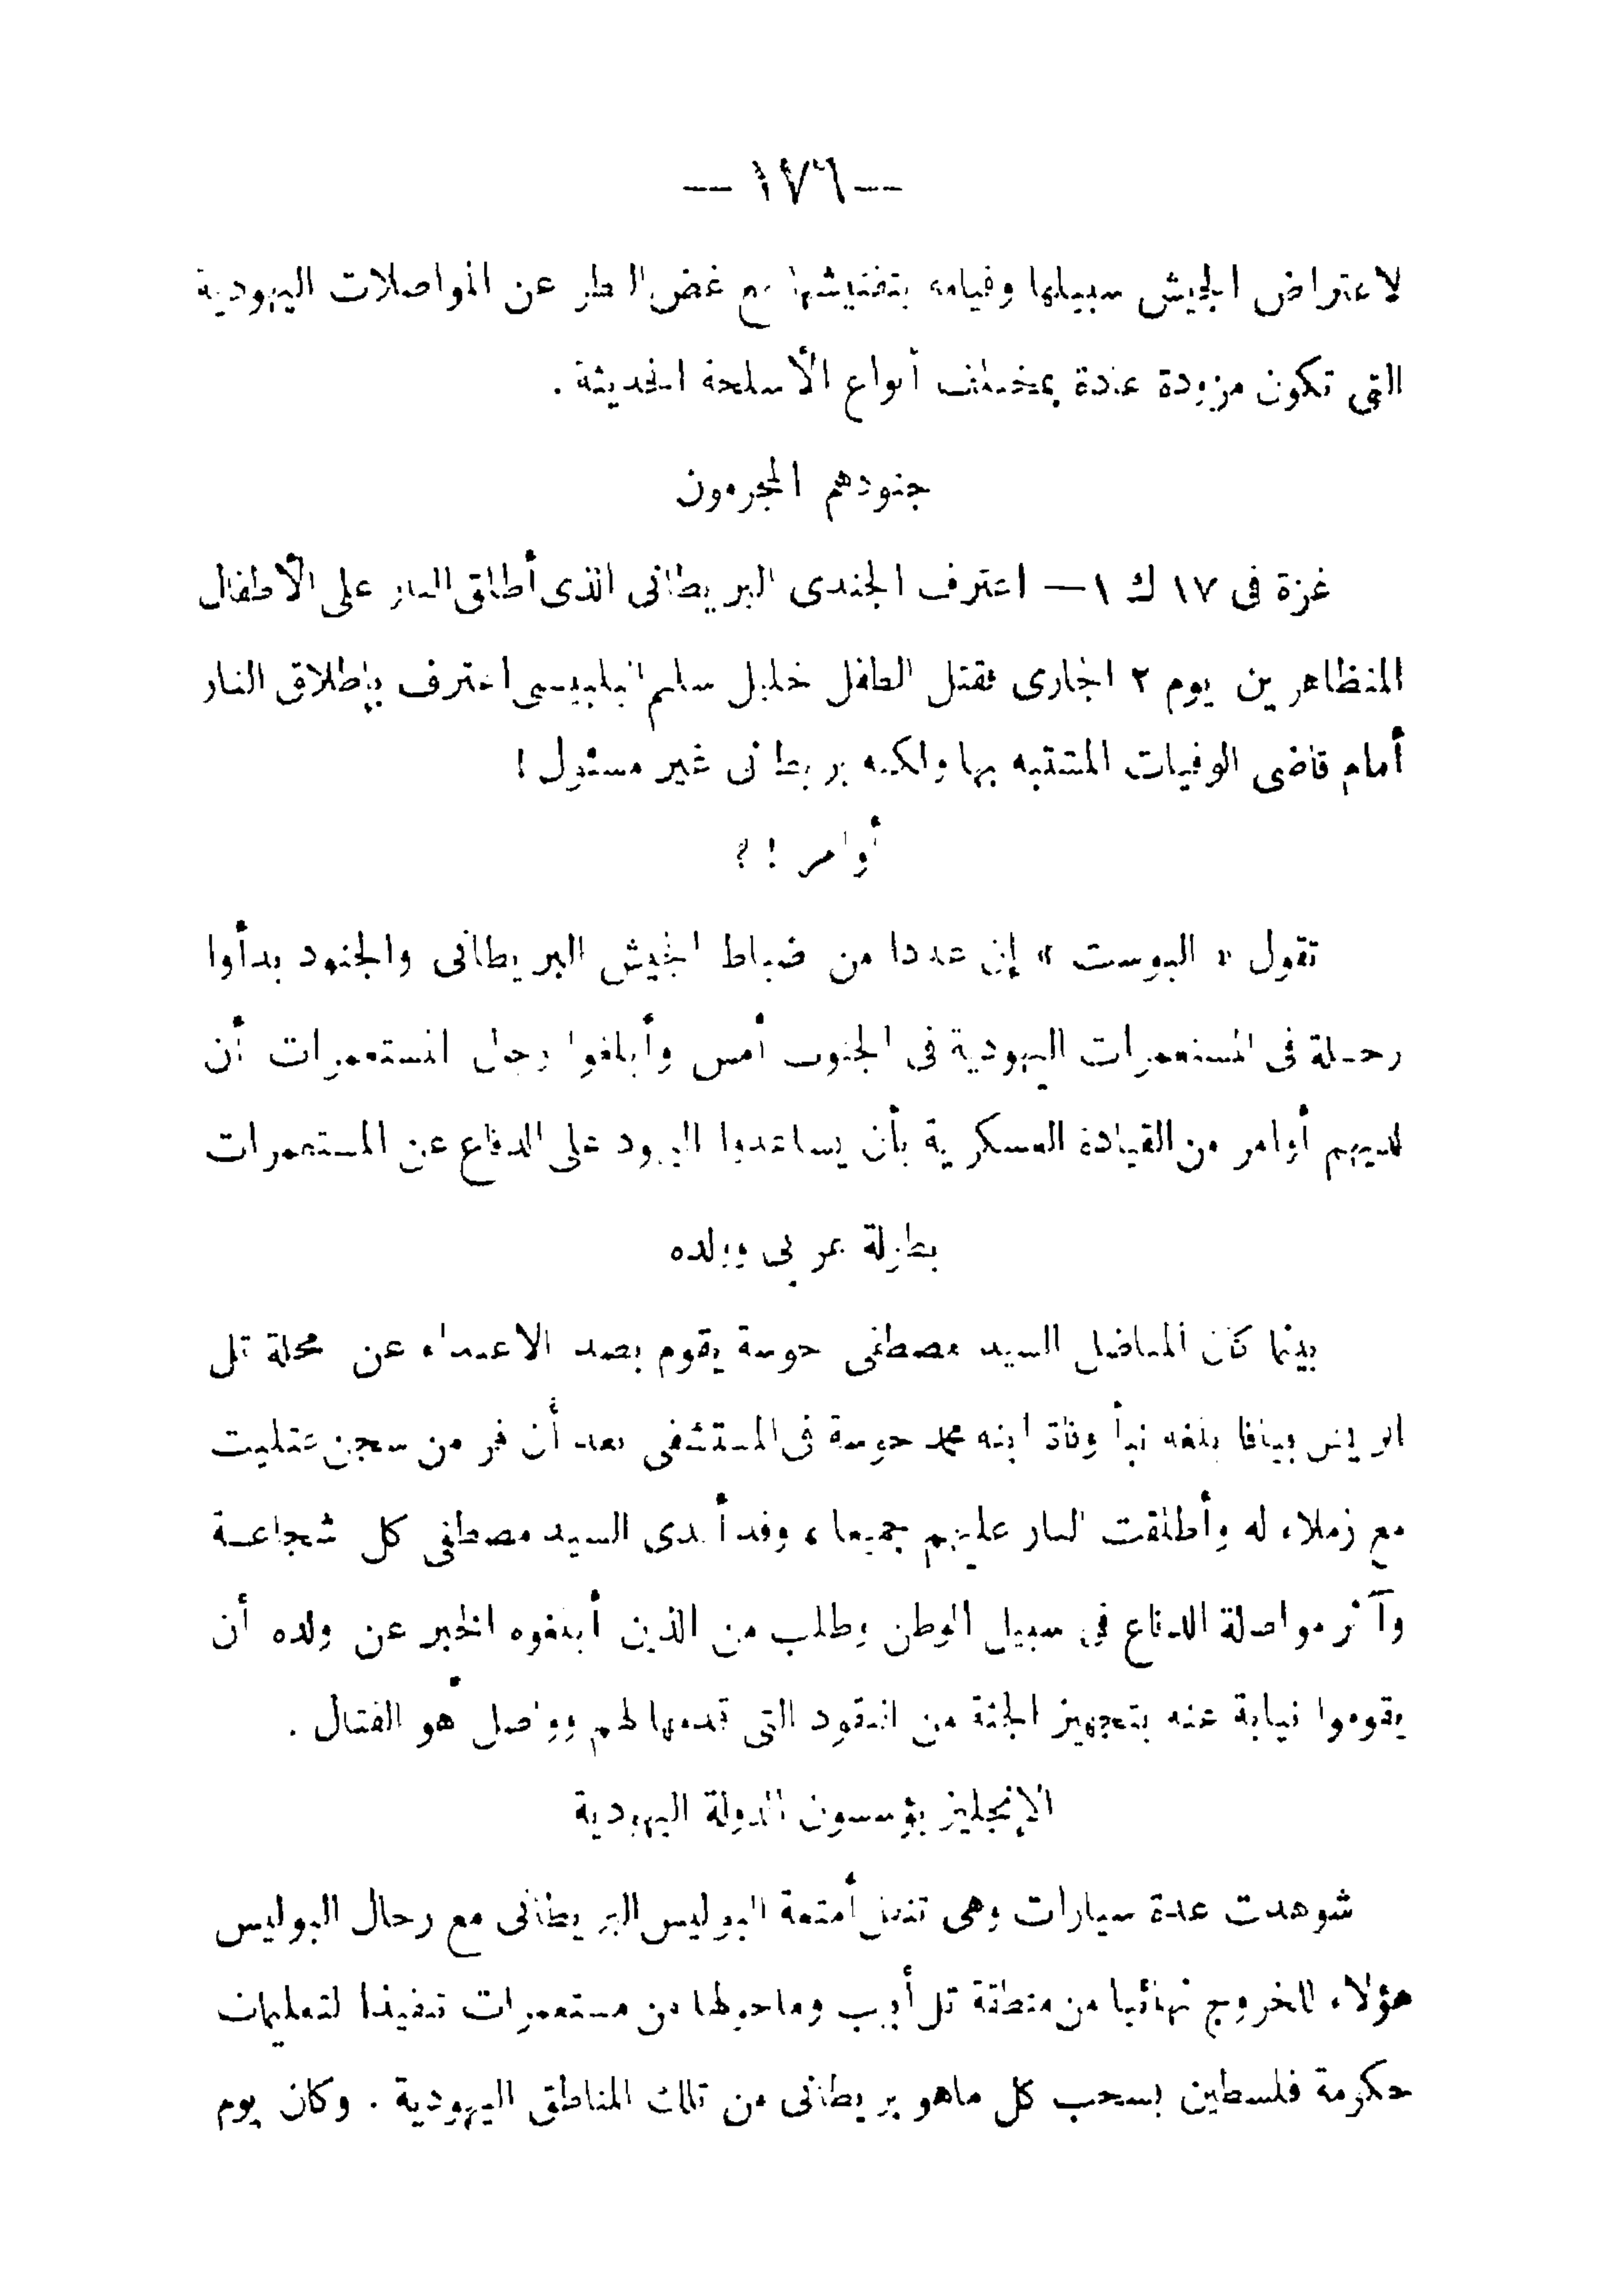 — ١٧٦ —
لاعتراض الجيش سبيلها وقيامه بتفتيشها مع غض النظر عن المواصلات اليهودية
التى تكون مزودة عادة بمختلف أنواع الأسلحة الحديثة .
جنودهم المجرمون
غزة فى ١٧ ك ١ — اعترف الجندى البريطانى الذى أطلق النار على الأطفال
المتظاهرين يوم ٢ الجارى فقتل الطفل خليل سليم البلبيسى اعترف بإطلاق النار
أمام قاضى الوفيات المشتبه بها ولكنه بريطانى غير مسئول !
أوامر ! ؟
تقول « البوست » إن عددا من ضباط الجيش البريطانى والجنود بدأوا
رحلة فى المستعمرات اليهودية فى الجنوب أمس وأبلغوا رجال المستعمرات أن
لديهم أوامر من القيادة العسكرية بأن يساعدوا اليهود على الدفاع عن المستعمرات
بطولة عربى وولده
بينما كان المناضل السيد مصطفى حوسة يقوم بصد الاعتداء عن محلة تل
الريش بيافا بلغه نبأ وفاة ابنه محمد حوسة فى المستشفى بعد أن فر من سجن عتليت
مع زملاء له وأطلقت النار عليهم جميعا ، وقد أبدى السيد مصطفى كل شجاعة
وآثر مواصلة الدفاع فى سبيل الوطن وطلب من الذين أبلغوه الخبر عن ولده أن
يقوموا نيابة عنه بتجهيز الجثة من النقود التى قدمها لهم وواصل هو القتال .
الإنجليز يؤسسون الدولة اليهودية
شوهدت عدة سيارات وهى تنقل أمتعة البوليس البريطانى مع رجال البوليس
هؤلاء للخروج نهائيا من منطقة تل أبيب وماحولها من مستعمرات تنفيذا لتعليمات
حكومة فلسطين بسحب كل ماهو بريطانى من تلك المناطق اليهودية . وكان يوم